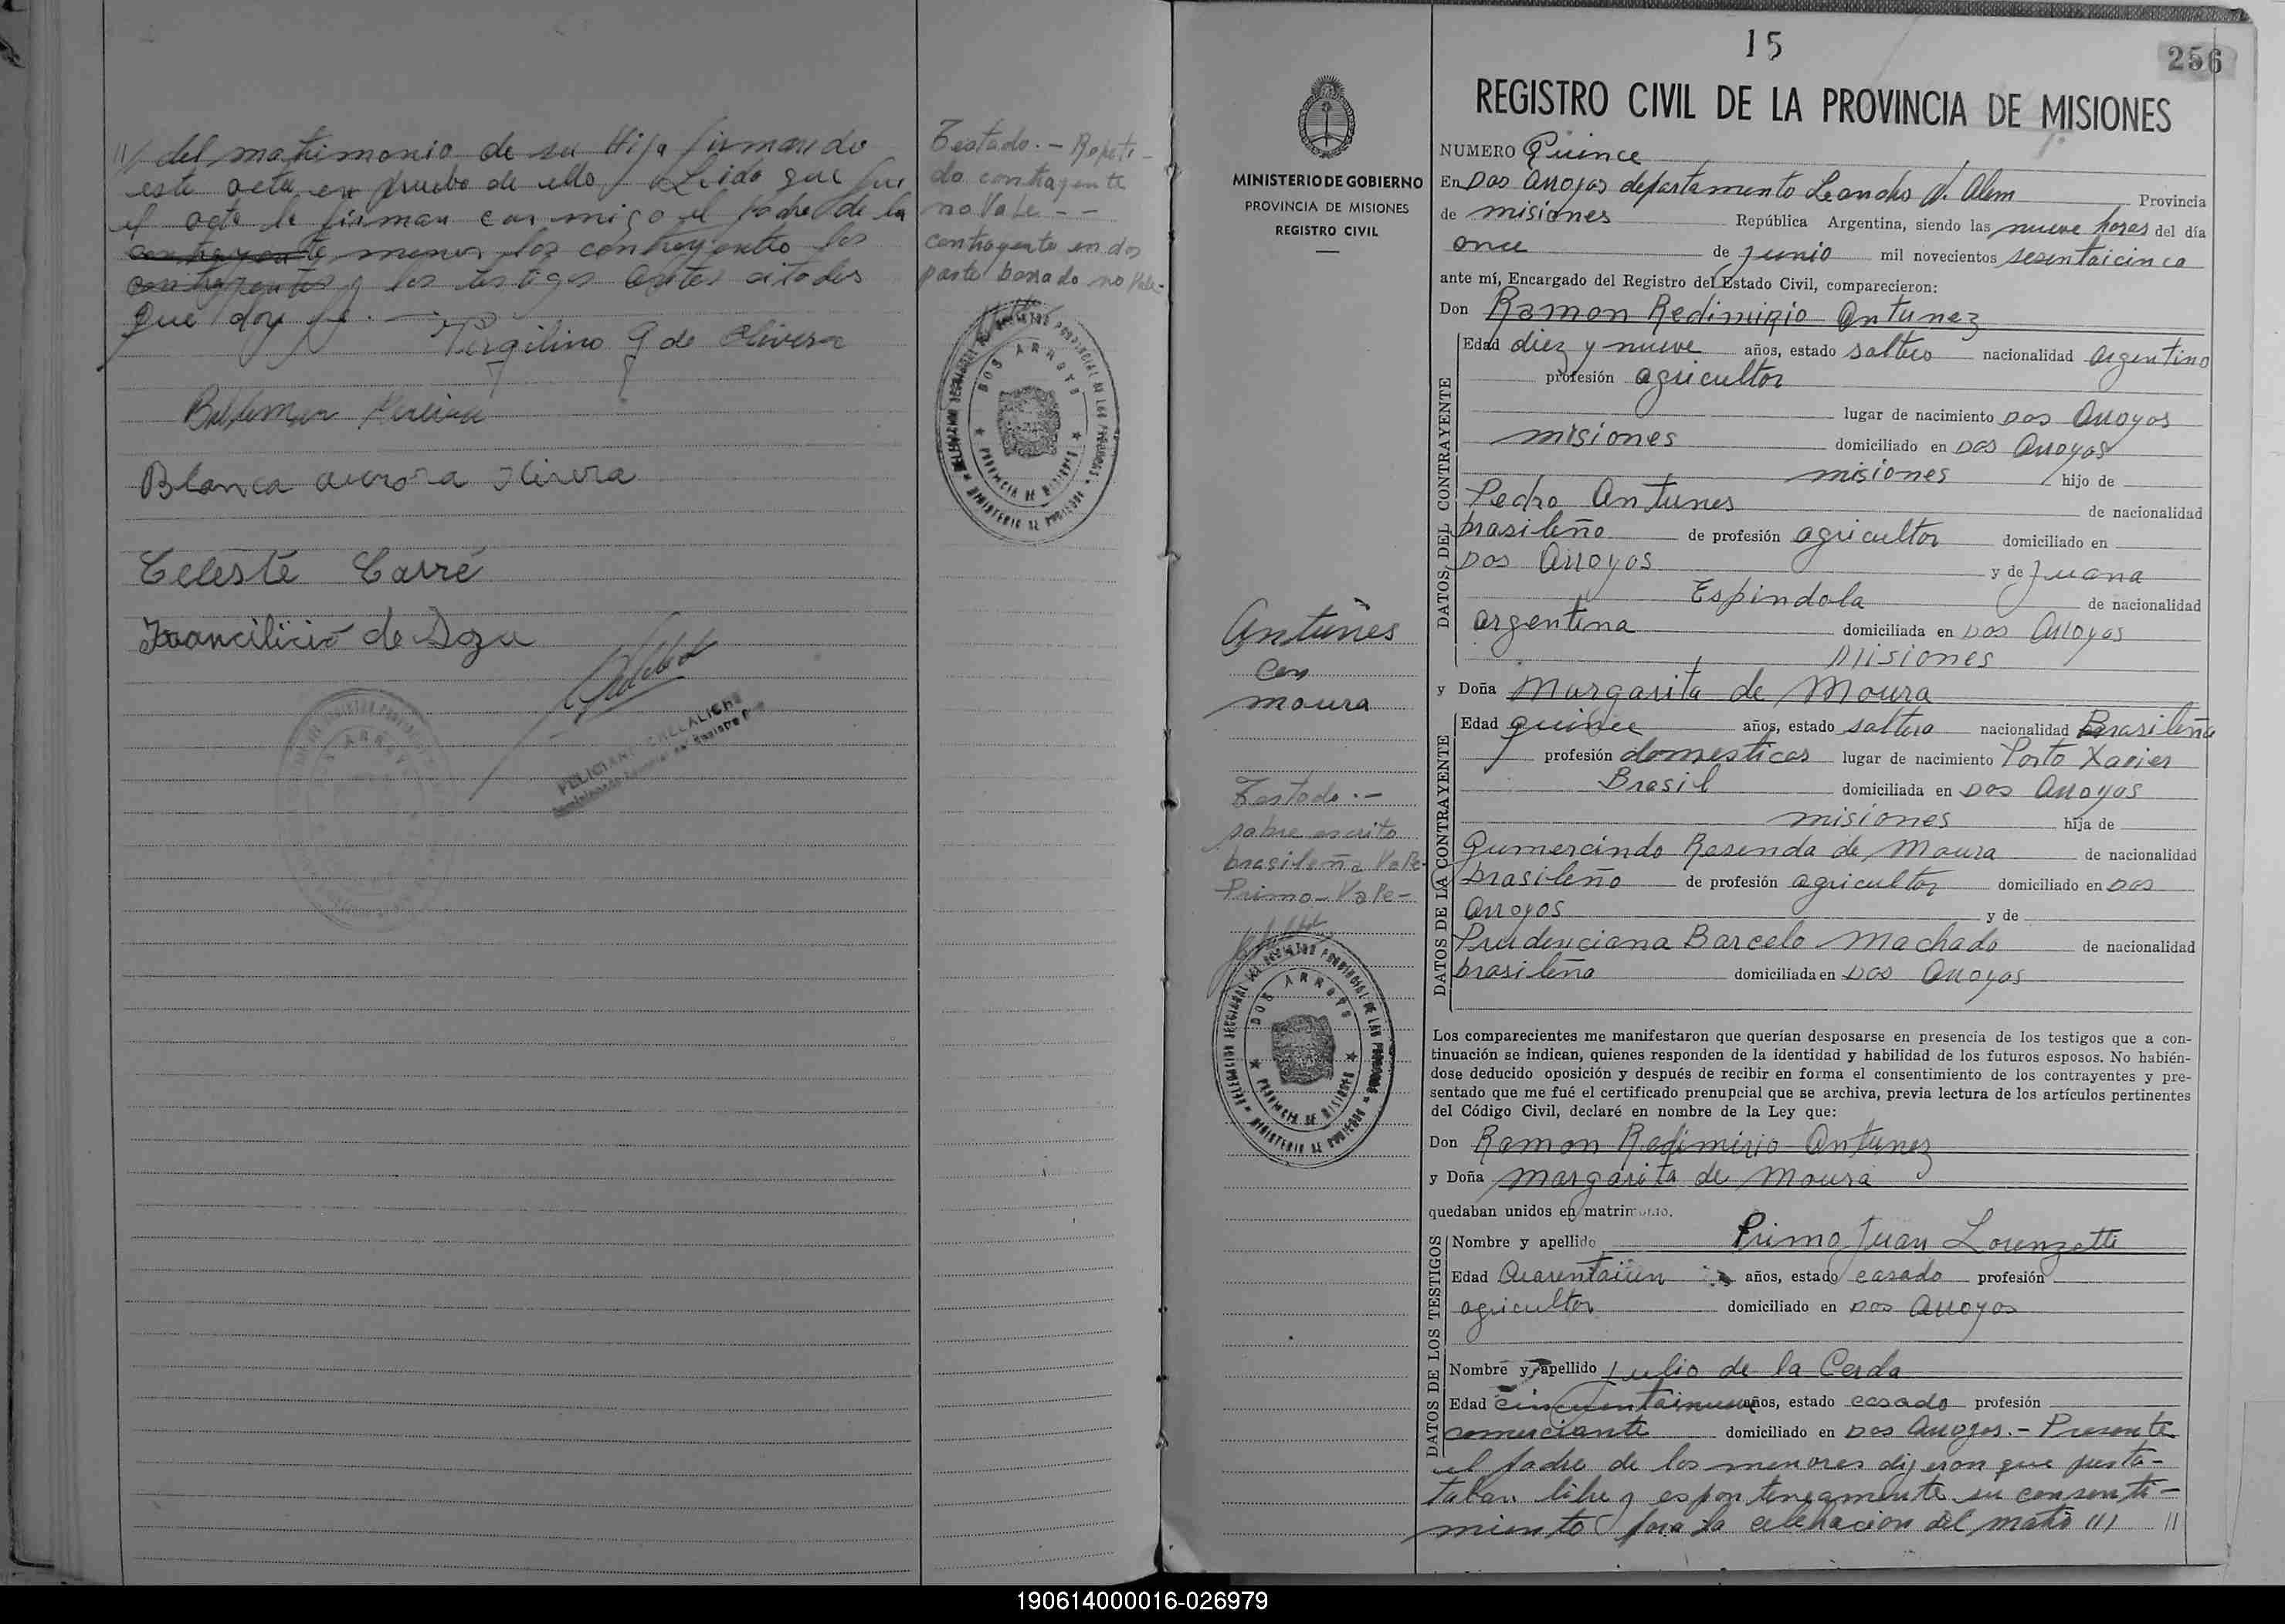 // del matrimonio de su Hija firmando
este acta en prueba de ello, Leida que fue
el acta la firman conmigo el padre de la
contrayente menor los contrayentes los
contrayentes y los testigos antes citados
que doy fe. —
Virgilino G de Olivera
Pereira
Blanca aurora Olivera
Celeste Carré
de Soza
Testado. - Repeti-
do contrayente
no Vale - -
contrayente en dos
parte borrado no Vale-
DOS ARROYOS
PROVINCIA DE MISIONES
MINISTERIO DE GOBIERNO
15
256
REGISTRO CIVIL DE LA PROVINCIA DE MISIONES
MINISTERIO DE GOBIERNO
PROVINCIA DE MISIONES
REGISTRO CIVIL
Antunes
con
moura
Testado.-
sobre escrito
brasileña Vale-
Primo-Vale-
DOS ARROYOS
PROVINCIA DE MISIONES
MINISTERIO DE GOBIERNO
NUMERO Quince
En Dos Arroyos departamento Leandro N. Alem Provincia
de misiones República Argentina, siendo las nueve horas del día
once de Junio mil novecientos sesentaicinco
ante mí, Encargado del Registro del Estado Civil, comparecieron:
Don Ramon Redimirio Antunez
DATOS DEL CONTRAYENTE
Edad diez y nueve años, estado soltero nacionalidad argentino
profesión agricultor
lugar de nacimiento Dos Arroyos
misiones domiciliado en Dos Arroyos
misiones hijo de
Pedro Antunes de nacionalidad
brasileño de profesión agricultor domiciliado en
Dos Arroyos y de Juana
Espindola de nacionalidad
argentina domiciliada en Dos Arroyos
Misiones
y Doña Margarita de Moura
DATOS DE LA CONTRAYENTE
Edad quince años, estado soltera nacionalidad Brasileña
profesión domesticas lugar de nacimiento Porto Xavier
Brasil domiciliada en Dos Arroyos
misiones hija de
Gumercindo Resenda de Moura de nacionalidad
brasileño de profesión agricultor domiciliado en Dos
Arroyos y de
Prudenciana Barcelo Machado de nacionalidad
brasileña domiciliada en Dos Arroyos
Los comparecientes me manifestaron que querían desposarse en presencia de los testigos que a con-
tinuación se indican, quienes responden de la identidad y habilidad de los futuros esposos. No habién-
dose deducido oposición y después de recibir en forma el consentimiento de los contrayentes y pre-
sentado que me fué el certificado prenupcial que se archiva, previa lectura de los artículos pertinentes
del Código Civil, declaré en nombre de la Ley que:
Don Ramon Redimirio Antunez
y Doña Margarita de Moura
quedaban unidos en matrimonio.
DATOS DE LOS TESTIGOS
Nombre y apellido Primo Juan Lorenzetti
Edad Cuarentaiun años, estado casado profesión
agricultor domiciliado en Dos Arroyos
Nombre y apellido Julio de la Cerda
Edad cincuentainueve años, estado casado profesión
comerciante domiciliado en Dos Arroyos.- Presente
el padre de los menores dijeron que presta-
taban libre y espontaneamente su consenti-
miento para la celebracion del matri /// //
190614000016-026979